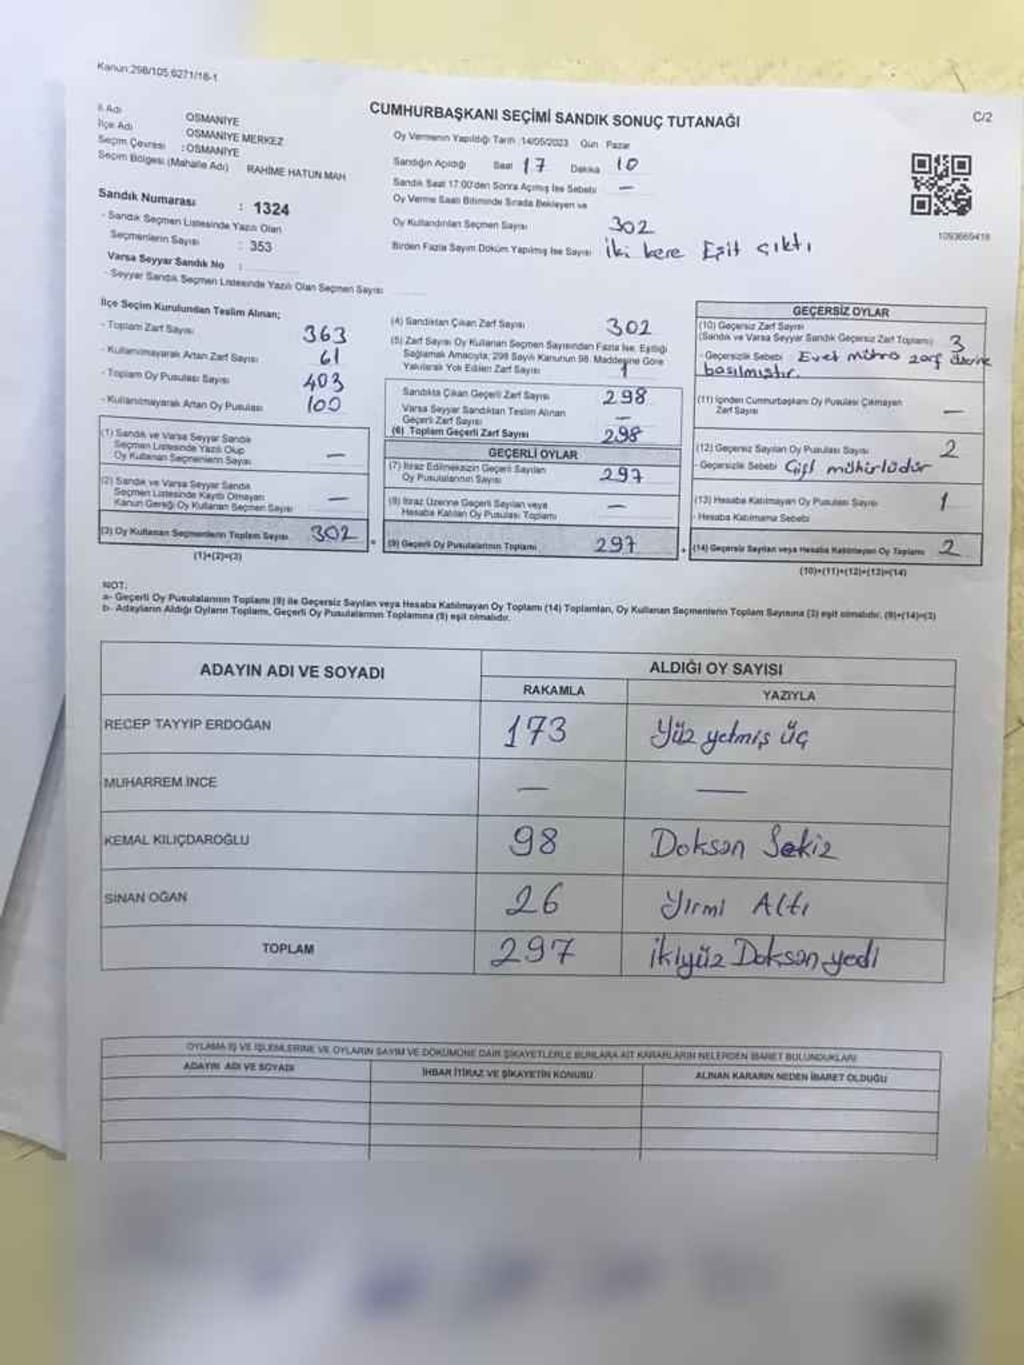 Kanun:298/105,6271/18-1
CUMHURBAŞKANI SEÇİMİ SANDIK SONUÇ TUTANAĞI
C/2
İl Adı OSMANİYE
İlçe Adı OSMANİYE MERKEZ
Seçim Çevresi :OSMANİYE
Seçim Bölgesi (Mahalle Adı) RAHİME HATUN MAH
Sandık Numarası : 1324
- Sandık Seçmen Listesinde Yazılı Olan
Seçmenlerin Sayısı : 353
Varsa Seyyar Sandık No :
- Seyyar Sandık Seçmen Listesinde Yazılı Olan Seçmen Sayısı
Oy Vermenin Yapıldığı Tarih :14/05/2023 Gün Pazar
Sandığın Açıldığı Saat 17 Dakika 10
Sandık Saat 17:00'den Sonra Açılmış İse Sebebi —
Oy Verme Saati Bitiminde Sırada Bekleyen ve
Oy Kullandırılan Seçmen Sayısı 302
Birden Fazla Sayım Döküm Yapılmış İse Sayısı iki kere Eşit çıktı
1093669418
İlçe Seçim Kurulundan Teslim Alınan;
- Toplam Zarf Sayısı 363
- Kullanılmayarak Artan Zarf Sayısı 61
- Toplam Oy Pusulası Sayısı 403
- Kullanılmayarak Artan Oy Pusulası 100
(1) Sandık ve Varsa Seyyar Sandık
Seçmen Listesinde Yazılı Olup
Oy Kullanan Seçmenlerin Sayısı —
(2) Sandık ve Varsa Seyyar Sandık
Seçmen Listesinde Kayıtlı Olmayan
Kanun Gereği Oy Kullanan Seçmen Sayısı —
(3) Oy Kullanan Seçmenlerin Toplam Sayısı 302
(1)+(2)=(3)
(4) Sandıktan Çıkan Zarf Sayısı 302
(5) Zarf Sayısı Oy Kullanan Seçmen Sayısından Fazla İse, Eşitliği
Sağlamak Amacıyla; 298 Sayılı Kanunun 98. Maddesine Göre
Yakılarak Yok Edilen Zarf Sayısı 1
Sandıkta Çıkan Geçerli Zarf Sayısı 298
Varsa Seyyar Sandıktan Teslim Alınan
Geçerli Zarf Sayısı —
(6) Toplam Geçerli Zarf Sayısı 298
GEÇERLİ OYLAR
(7) İtiraz Edilmeksizin Geçerli Sayılan
Oy Pusulalarının Sayısı 297
(8) İtiraz Üzerine Geçerli Sayılan veya
Hesaba Katılan Oy Pusulası Toplamı —
(9) Geçerli Oy Pusulalarının Toplamı 297
GEÇERSİZ OYLAR
(10) Geçersiz Zarf Sayısı
(Sandık ve Varsa Seyyar Sandık Geçersiz Zarf Toplamı) 3
- Geçersizlik Sebebi Evet mührü zarf üzerine
basılmıştır.
(11) İçinden Cumhurbaşkanı Oy Pusulası Çıkmayan
Zarf Sayısı —
(12) Geçersiz Sayılan Oy Pusulası Sayısı 2
- Geçersizlik Sebebi Çift mühürlüdür
(13) Hesaba Katılmayan Oy Pusulası Sayısı 1
- Hesaba Katılmama Sebebi
(14) Geçersiz Sayılan veya Hesaba Katılmayan Oy Toplamı 2
(10)+(11)+(12)+(13)=(14)
NOT:
a- Geçerli Oy Pusulalarının Toplamı (9) ile Geçersiz Sayılan veya Hesaba Katılmayan Oy Toplamı (14) Toplamları, Oy Kullanan Seçmenlerin Toplam Sayısına (3) eşit olmalıdır. (9)+(14)=(3)
b- Adayların Aldığı Oyların Toplamı, Geçerli Oy Pusulalarının Toplamına (9) eşit olmalıdır.
ADAYIN ADI VE SOYADI ALDIĞI OY SAYISI
RAKAMLA YAZIYLA
RECEP TAYYİP ERDOĞAN 173 Yüz yetmiş üç
MUHARREM İNCE — —
KEMAL KILIÇDAROĞLU 98 Doksan Sekiz
SİNAN OĞAN 26 Yirmi Altı
TOPLAM 297 ikiyüz Doksan yedi
OYLAMA İŞ VE İŞLEMLERİNE VE OYLARIN SAYIM VE DÖKÜMÜNE DAİR ŞİKAYETLERLE BUNLARA AİT KARARLARIN NELERDEN İBARET BULUNDUKLARI
ADAYIN ADI VE SOYADI İHBAR İTİRAZ VE ŞİKAYETİN KONUSU ALINAN KARARIN NEDEN İBARET OLDUĞU